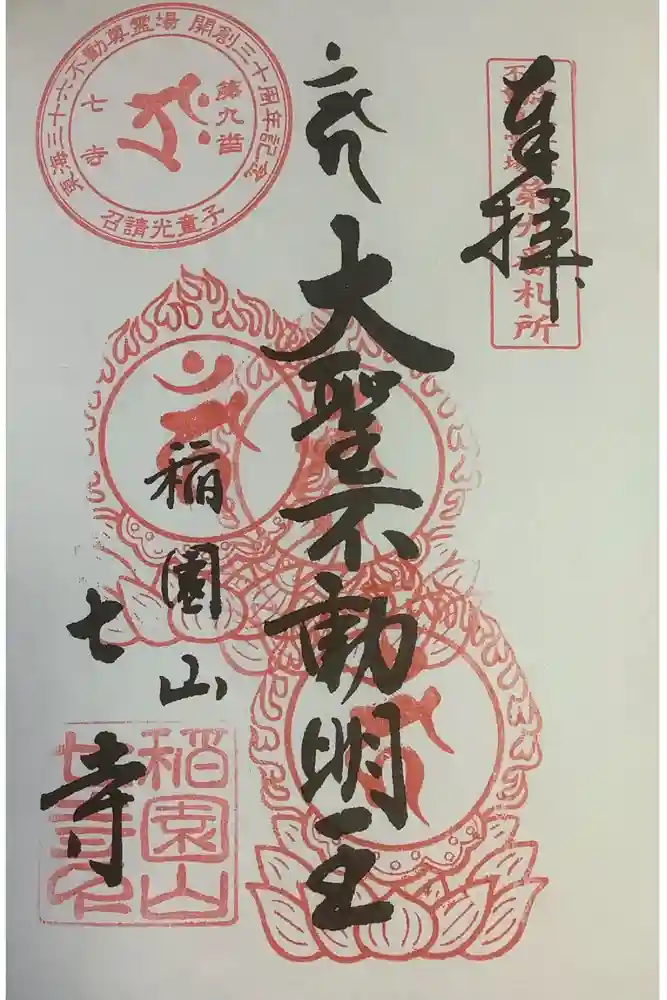 奉拝
第九番札所
大聖不動明王
稲園山
七寺
東海三十六不動尊霊場 開創三十周年記念
第九番
七寺
召請光童子
稻園山